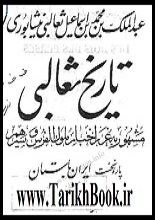 عبدالملک بن محمد بن اسماعیل ثعالبی نیشابوری
تاریخ ثعالبی
مشهور به غرر اخبار ملوک الفرس و سیرهم
پارهٔ نخست ایران باستان
www.TarikhBook.ir